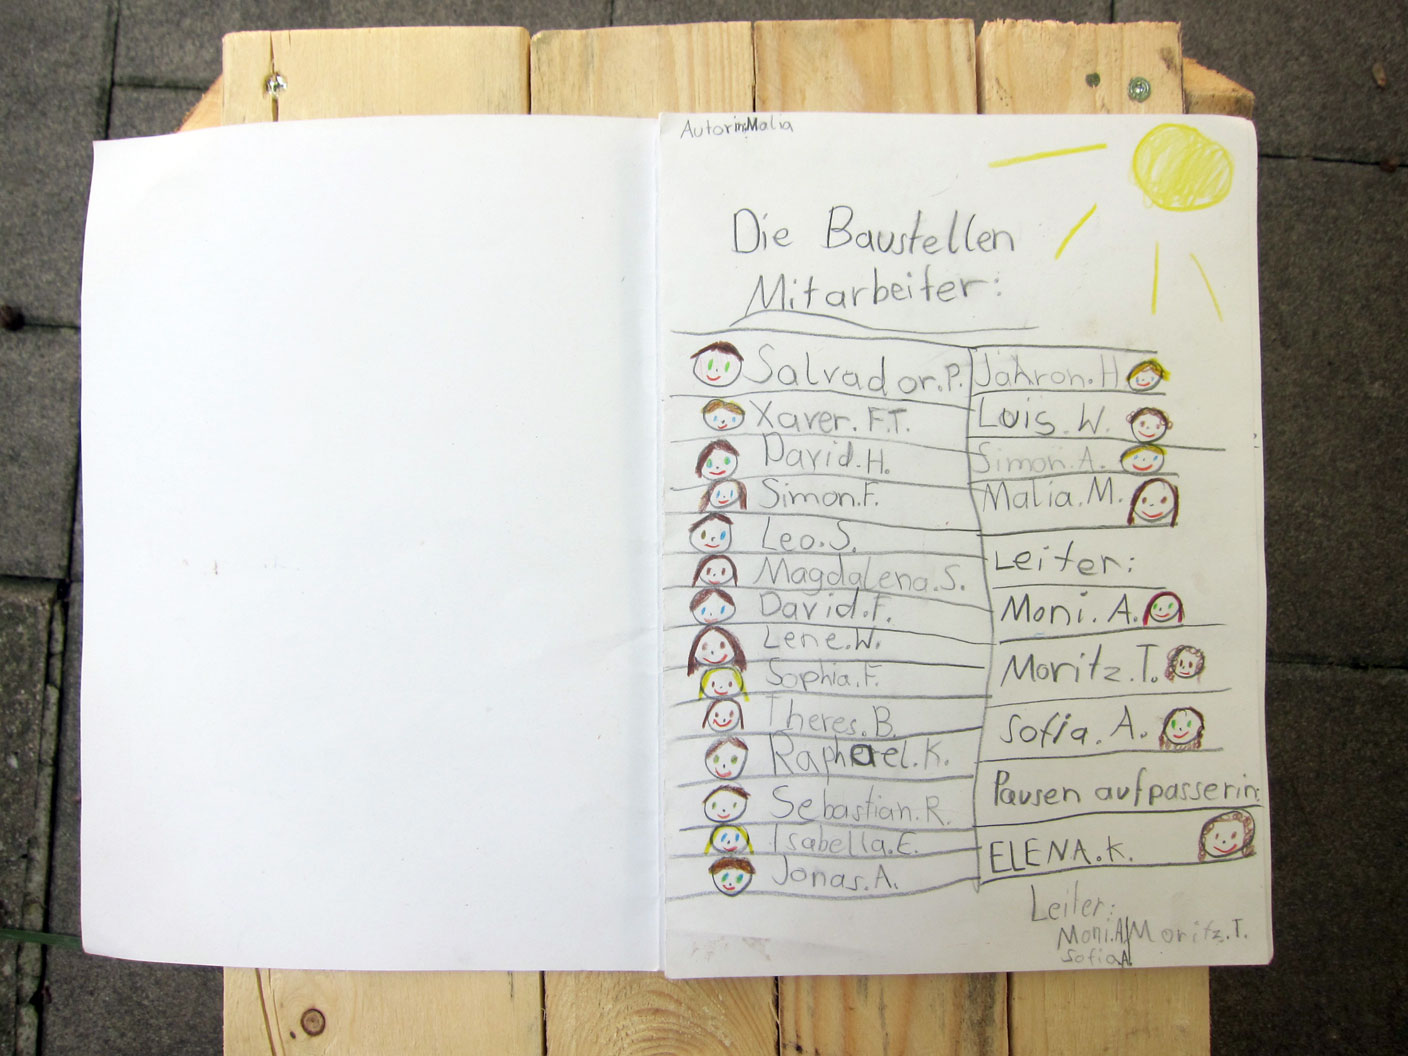 Autorin Malia
Die Baustellen
Mitarbeiter:
Salvador.P.
Xaver. F.T.
David.H.
Simon.F.
Leo.S.
Magdalena.S.
David.F.
Lene.W.
Sophia.F.
Theres.B.
Raphael.K.
Sebastian.R.
Isabella.E.
Jonas.A.
Jahron.H.
Luis.W.
Simon.A.
Malia.M.
Leiter:
Moni.A.
Moritz.T.
Sofia.A.
Pausen aufpasserin
ELENA.K.
Leiter:
Moni.A/Moritz.T.
Sofia A.